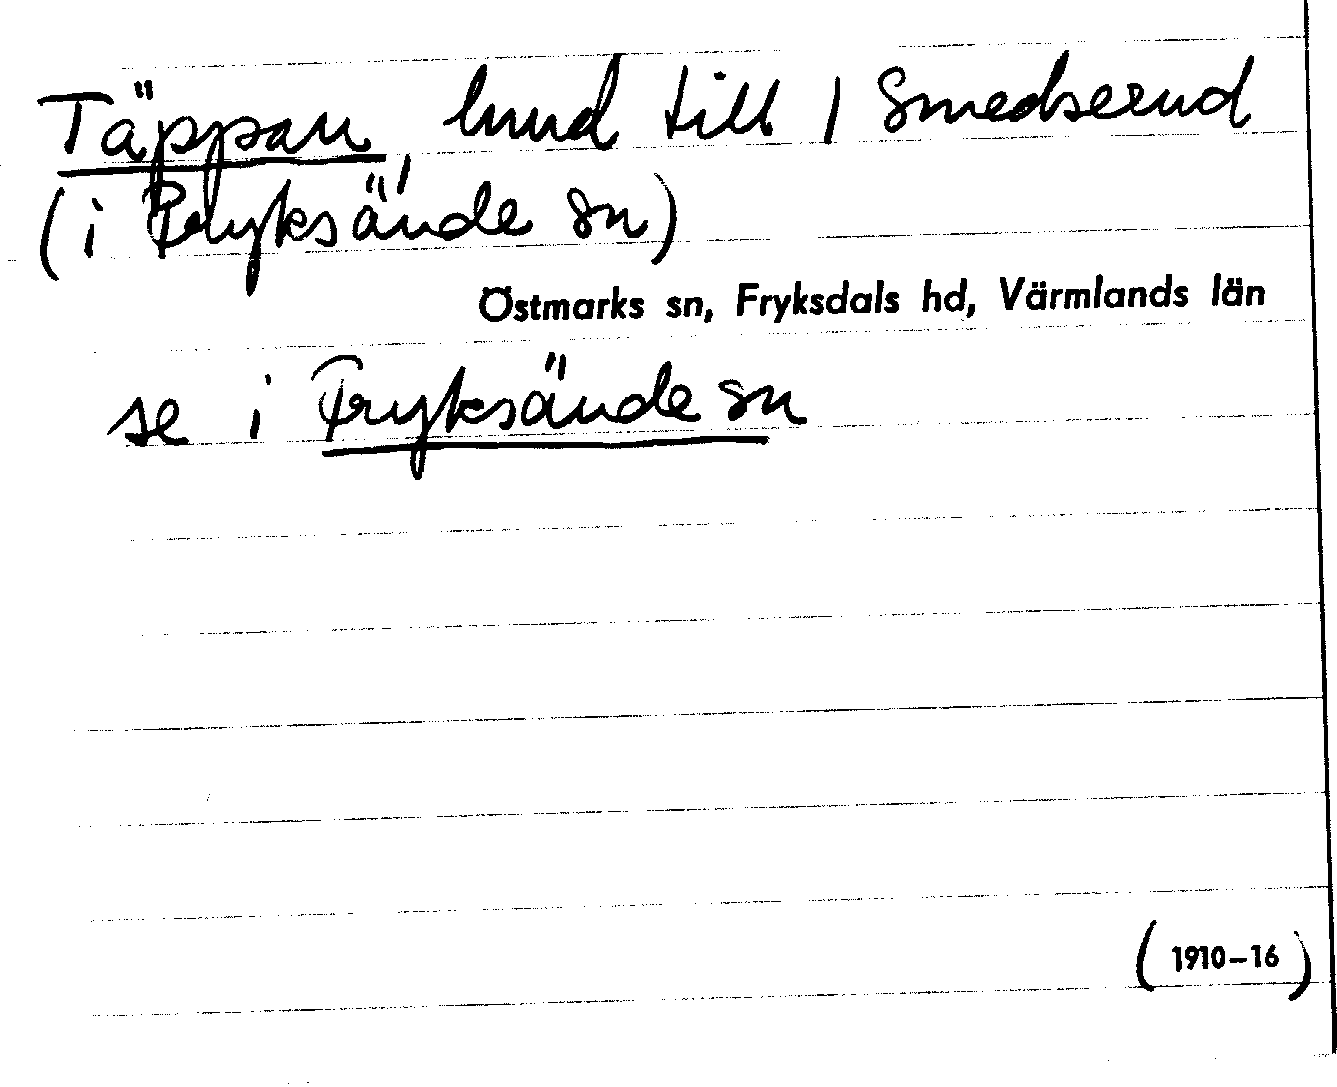 Täppan, hmd till 1 Smedserud
(i Fryksände sn)
Östmarks sn, Fryksdals hd, Värmlands län
se i Fryksände sn
(1910–16)